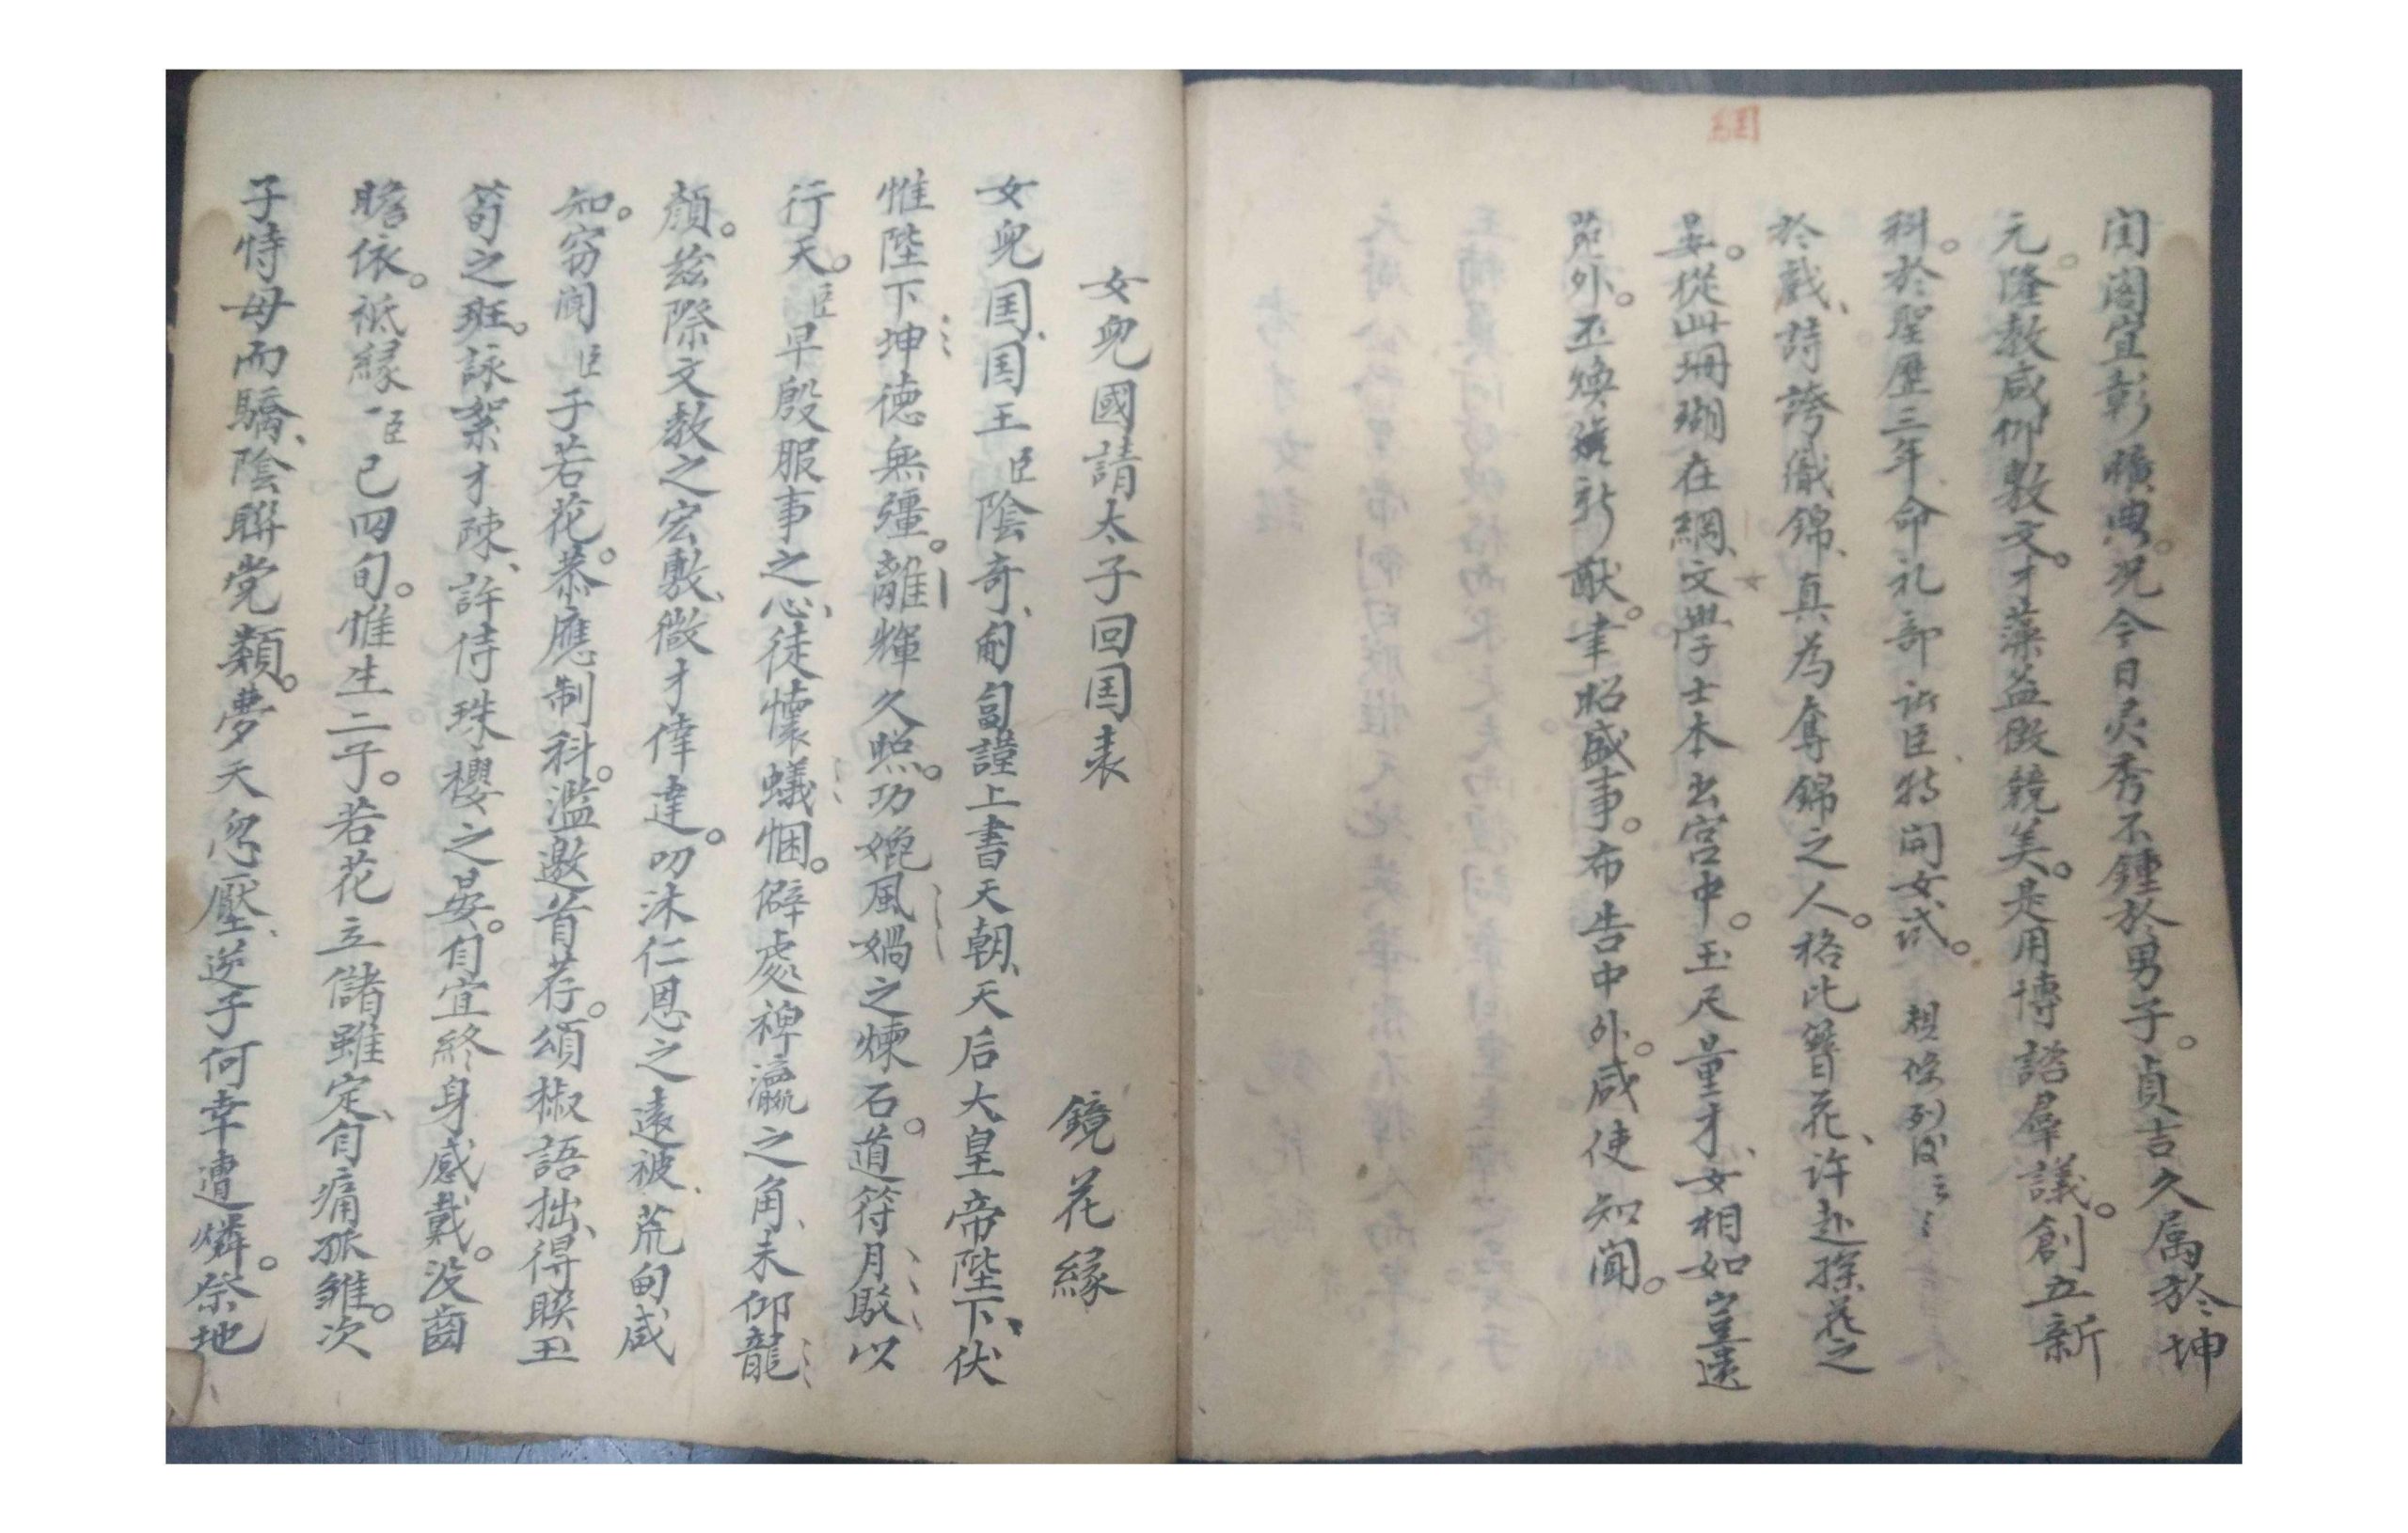 網
閨閣宜彰曠典。况今日灵秀不鍾於男子。貞吉久属於坤
元。隆教咸仰敷文。才藻益徵競美。是用博諮羣議。創立新
科。於聖歷三年命礼部諸臣、特開女試。規條列後云云
於戲、詩誇織錦、真為奪錦之人。格比簪花、许赴探花之
晏。從此珊瑚在綱、文學士本出宮中。玉尺量才、女相如豈遠
苑外。丕煥新猷。聿昭盛事。布告中外。咸使知聞。
女兒國請太子回国表
鏡花緣
女兒国、国王臣陰奇、匍匐謹上書天朝、天后大皇帝陛下、伏
惟陛下坤德無彊。離輝久照。功媲風媧之煉石。道符月馭以
行天。臣早殷服事之心、徒懷蟻悃。僻處裨瀛之角、未仰龍
顏。兹際文教之宏敷、微才倖達。叨沐仁恩之遠被、荒甸咸
知。窃闻臣子若花。恭應制科。濫邀首荐。頌椒語拙、得聮玉
荀之班。詠絮才踈、許侍珠櫻之晏。自宜終身感戴。没齒
瞻依。祇緣臣已四旬。惟生二子。若花立儲雖定、自痛孤雏。次
子恃母而驕、陰聯党類。夢天忽壓、逆子何幸遭燐。祭地